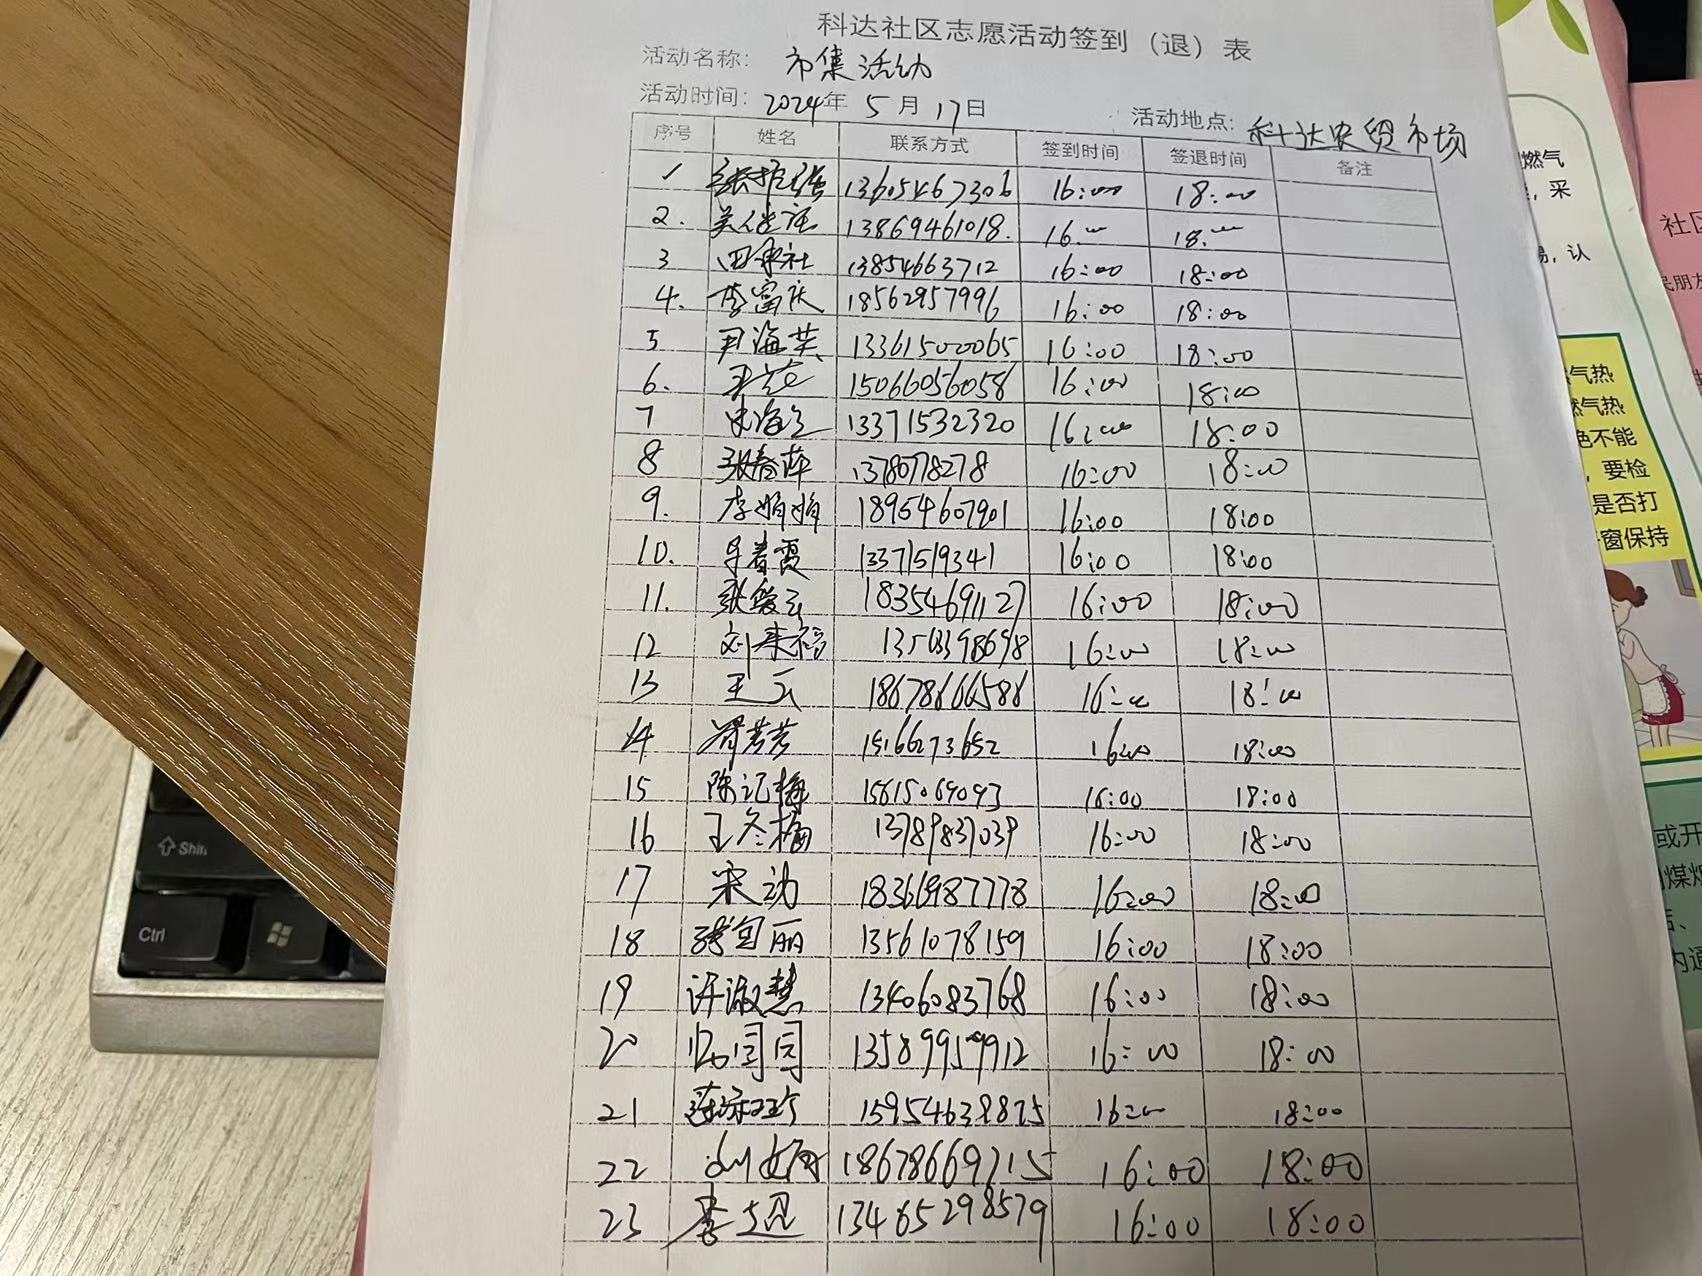 科达社区志愿活动签到（退）表
活动名称： 市集活动
活动时间：2024年 5月17日 活动地点：科达农贸市场
序号 姓名 联系方式 签到时间 签退时间 备注
1 13605467306 16:00 18:00
2. 13869461018. 16:00 18:00
3 田承社 13854663712 16:00 18:00
4. 李富庆 18562957996 16:00 18:00
5 尹海英 13361500065 16:00 18:00
6. 15066056058 16:00 18:00
7 13371532320 16:00 18:00
8 张春萍 13780778278 16:00 18:00
9. 李娟娟 18954607901 16:00 18:00
10. 春霞 13371519341 16:00 18:00
11. 18354691127 16:00 18:00
12 刘来福 16:00 18:00
13 王云 18678666586 16:00 18:00
14 芳芳 15166273652 16:00 18:00
15 陈记梅 15615069093 16:00 18:00
16 王冬梅 13789837039 16:00 18:00
17 宋动 18366987778 16:00 18:00
18 丽 13561078159 16:00 18:00
19 许淑慧 13406083768 16:00 18:00
20 同同 13589959912 16:00 18:00
21 15954638825 16:00 18:00
22 18678669715 16:00 18:00
23 李超 13465298579 16:00 18:00
燃气
，采
易，认
气热
燃气热
色不能
，要检
是否打
窗保持
社区
民朋友
或开
Shift
Ctrl